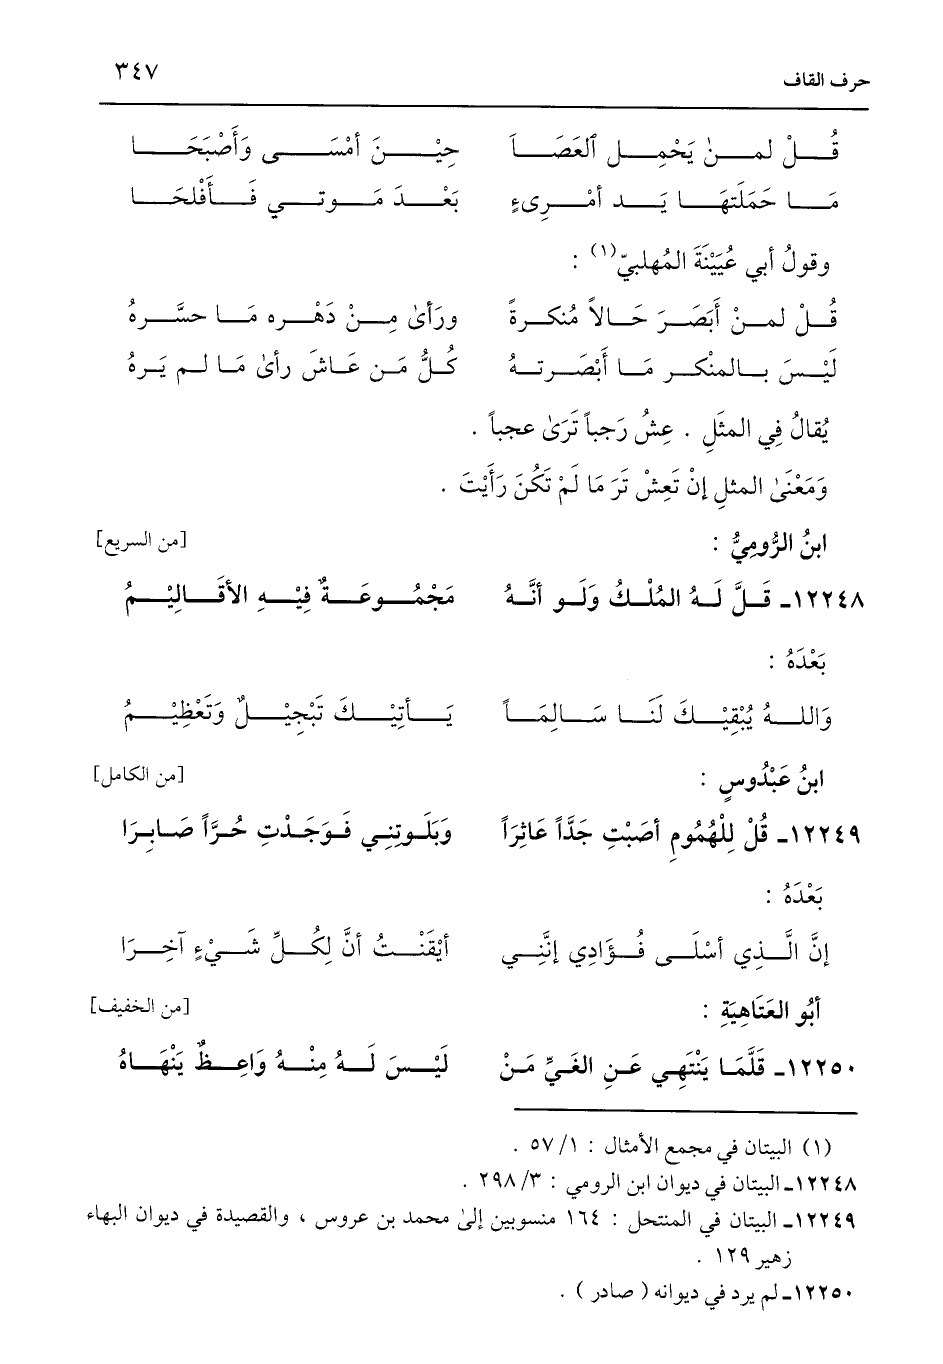 حرف القاف ٣٤٧
قُلْ لمنْ يَحْمِل ٱلعَصَا حِيْنَ أمْسَى وَأَصْبَحَا
مَا حَمَلَتهَا يَد أمْرِىءٍ بَعْدَ مَوتي فَأَفْلحَا
وقولُ أبي عُيَيْنَةَ المُهلبيّ(١) :
قُلْ لمنْ أَبصَرَ حَالاً مُنكرةً ورَأىٰ مِنْ دَهْره مَا حسَّرهُ
لَيْسَ بالمنْكر مَا أَبْصَرتهُ كُلُّ مَن عَاشَ رأىٰ مَا لم يَرهُ
يُقالُ فِي المثَلِ . عِشْ رَجباً تَرَىٰ عجباً .
وَمَعْنَىٰ المثلِ إنْ تَعِشْ تَرَ مَا لَمْ تَكُنَ رَأَيْتَ .
ابنُ الرُّومِيُّ : [من السريع]
١٢٢٤٨ـ قَلَّ لَهُ المُلْكُ وَلَو أنَّهُ مَجْمُوعَةٌ فِيْهِ الأقَالِيْمُ
بَعْدَهُ :
وَاللهُ يُبْقِيْكَ لَنَا سَالِمَاً يَأتِيْكَ تَبْجِيْلٌ وَتَعْظِيْمُ
ابنُ عَبْدُوسٍ : [من الكامل]
١٢٢٤٩ـ قُلْ لِلْهُمُومِ أصَبْتِ جَدَّاً عَاثِرَاً وَبَلَوتِنِي فَوَجَدْتِ حُرَّاً صَابِرَا
بَعْدَهُ :
إنَّ الَّذِي أسْلَى فُؤَادِي إنَّنِي أيْقَنْتُ أنَّ لِكُلِّ شَيْءٍ آخِرَا
أبُو العَتَاهِيَةِ : [من الخفيف]
١٢٢٥٠ـ قَلَّمَا يَنْتَهِي عَنِ الغَيِّ مَنْ لَيْسَ لَهُ مِنْهُ وَاعِظٌ يَنْهَاهُ
(١) البيتان في مجمع الأمثال : ٥٧/١ .
١٢٢٤٨ـ البيتان في ديوان ابن الرومي : ٢٩٨/٣ .
١٢٢٤٩ـ البيتان في المنتحل : ١٦٤ منسوبين إلىٰ محمد بن عروس ، والقصيدة في ديوان البهاء
زهير ١٢٩ .
١٢٢٥٠ـ لم يرد في ديوانه ( صادر ) .